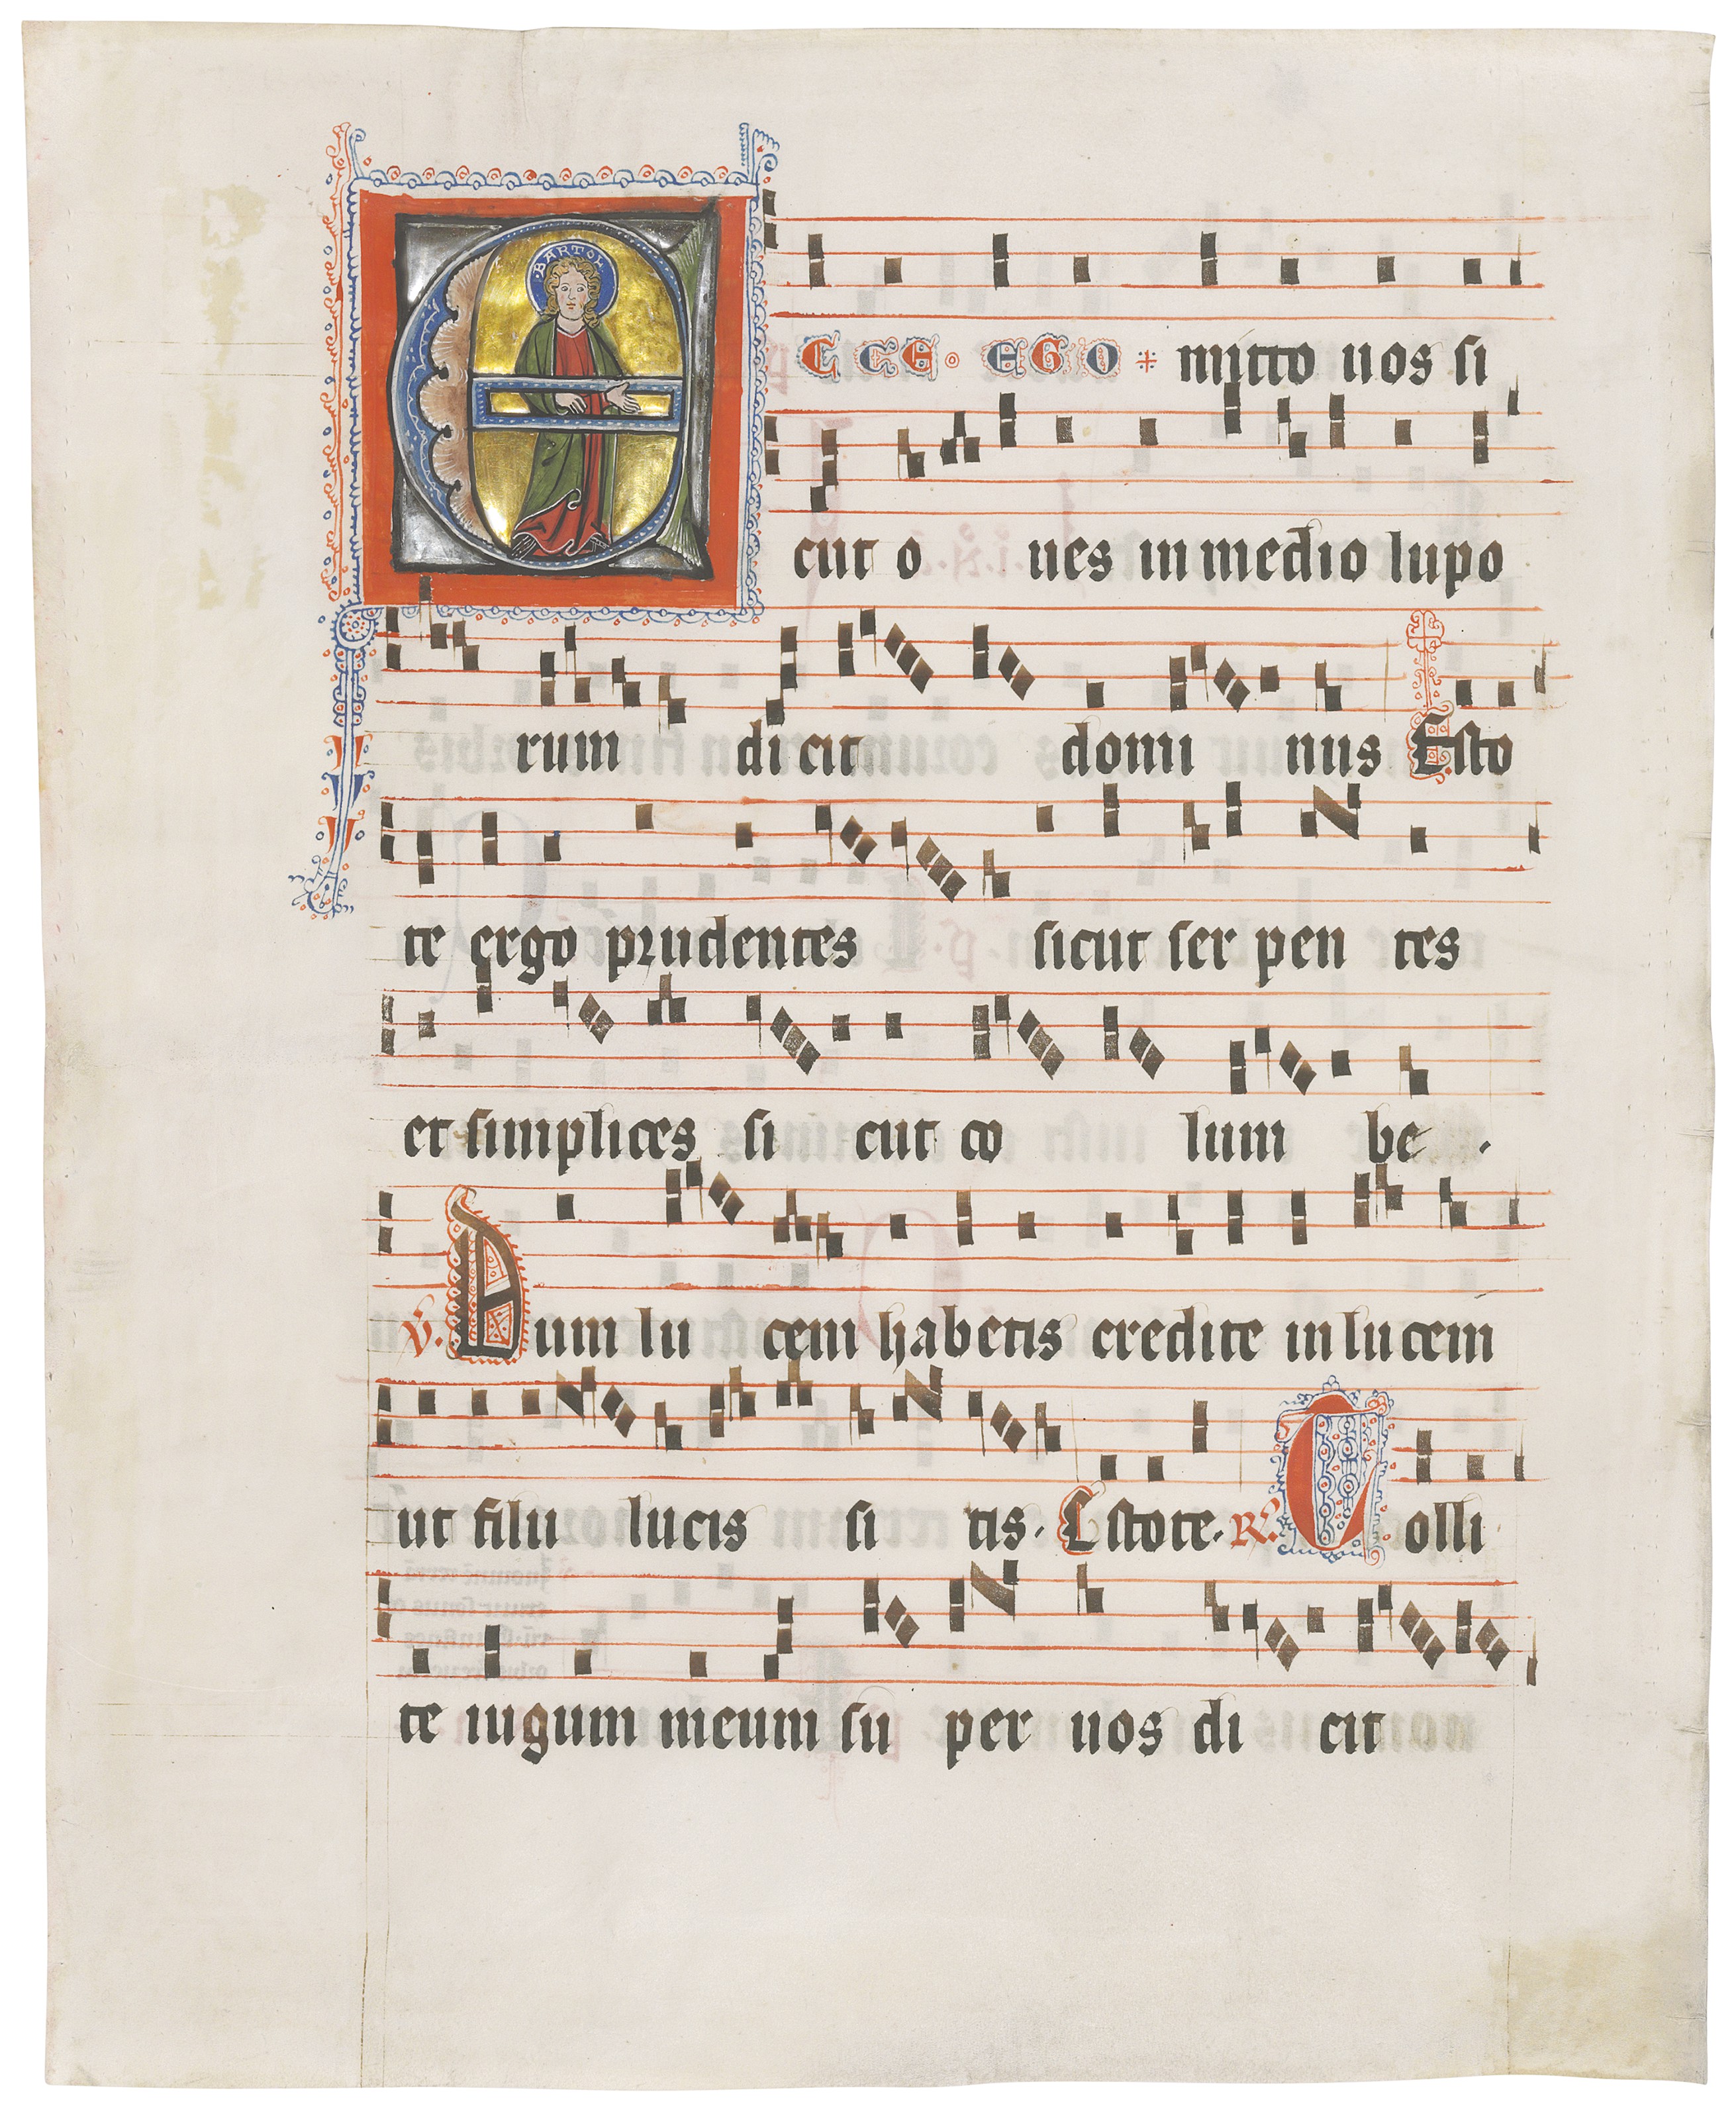 BARTOL
E CCE · EGO · mitto uos si
cut o ues in medio lupo
rum di cit domi nus Esto
te ergo prudentes sicut ser pen tes
et simplices si cut co lum be .
V. Dum lu cem habetis credite in lu cem
ut filii lucis si tis. Estote. R. Tolli
te iugum meum su per uos di cit